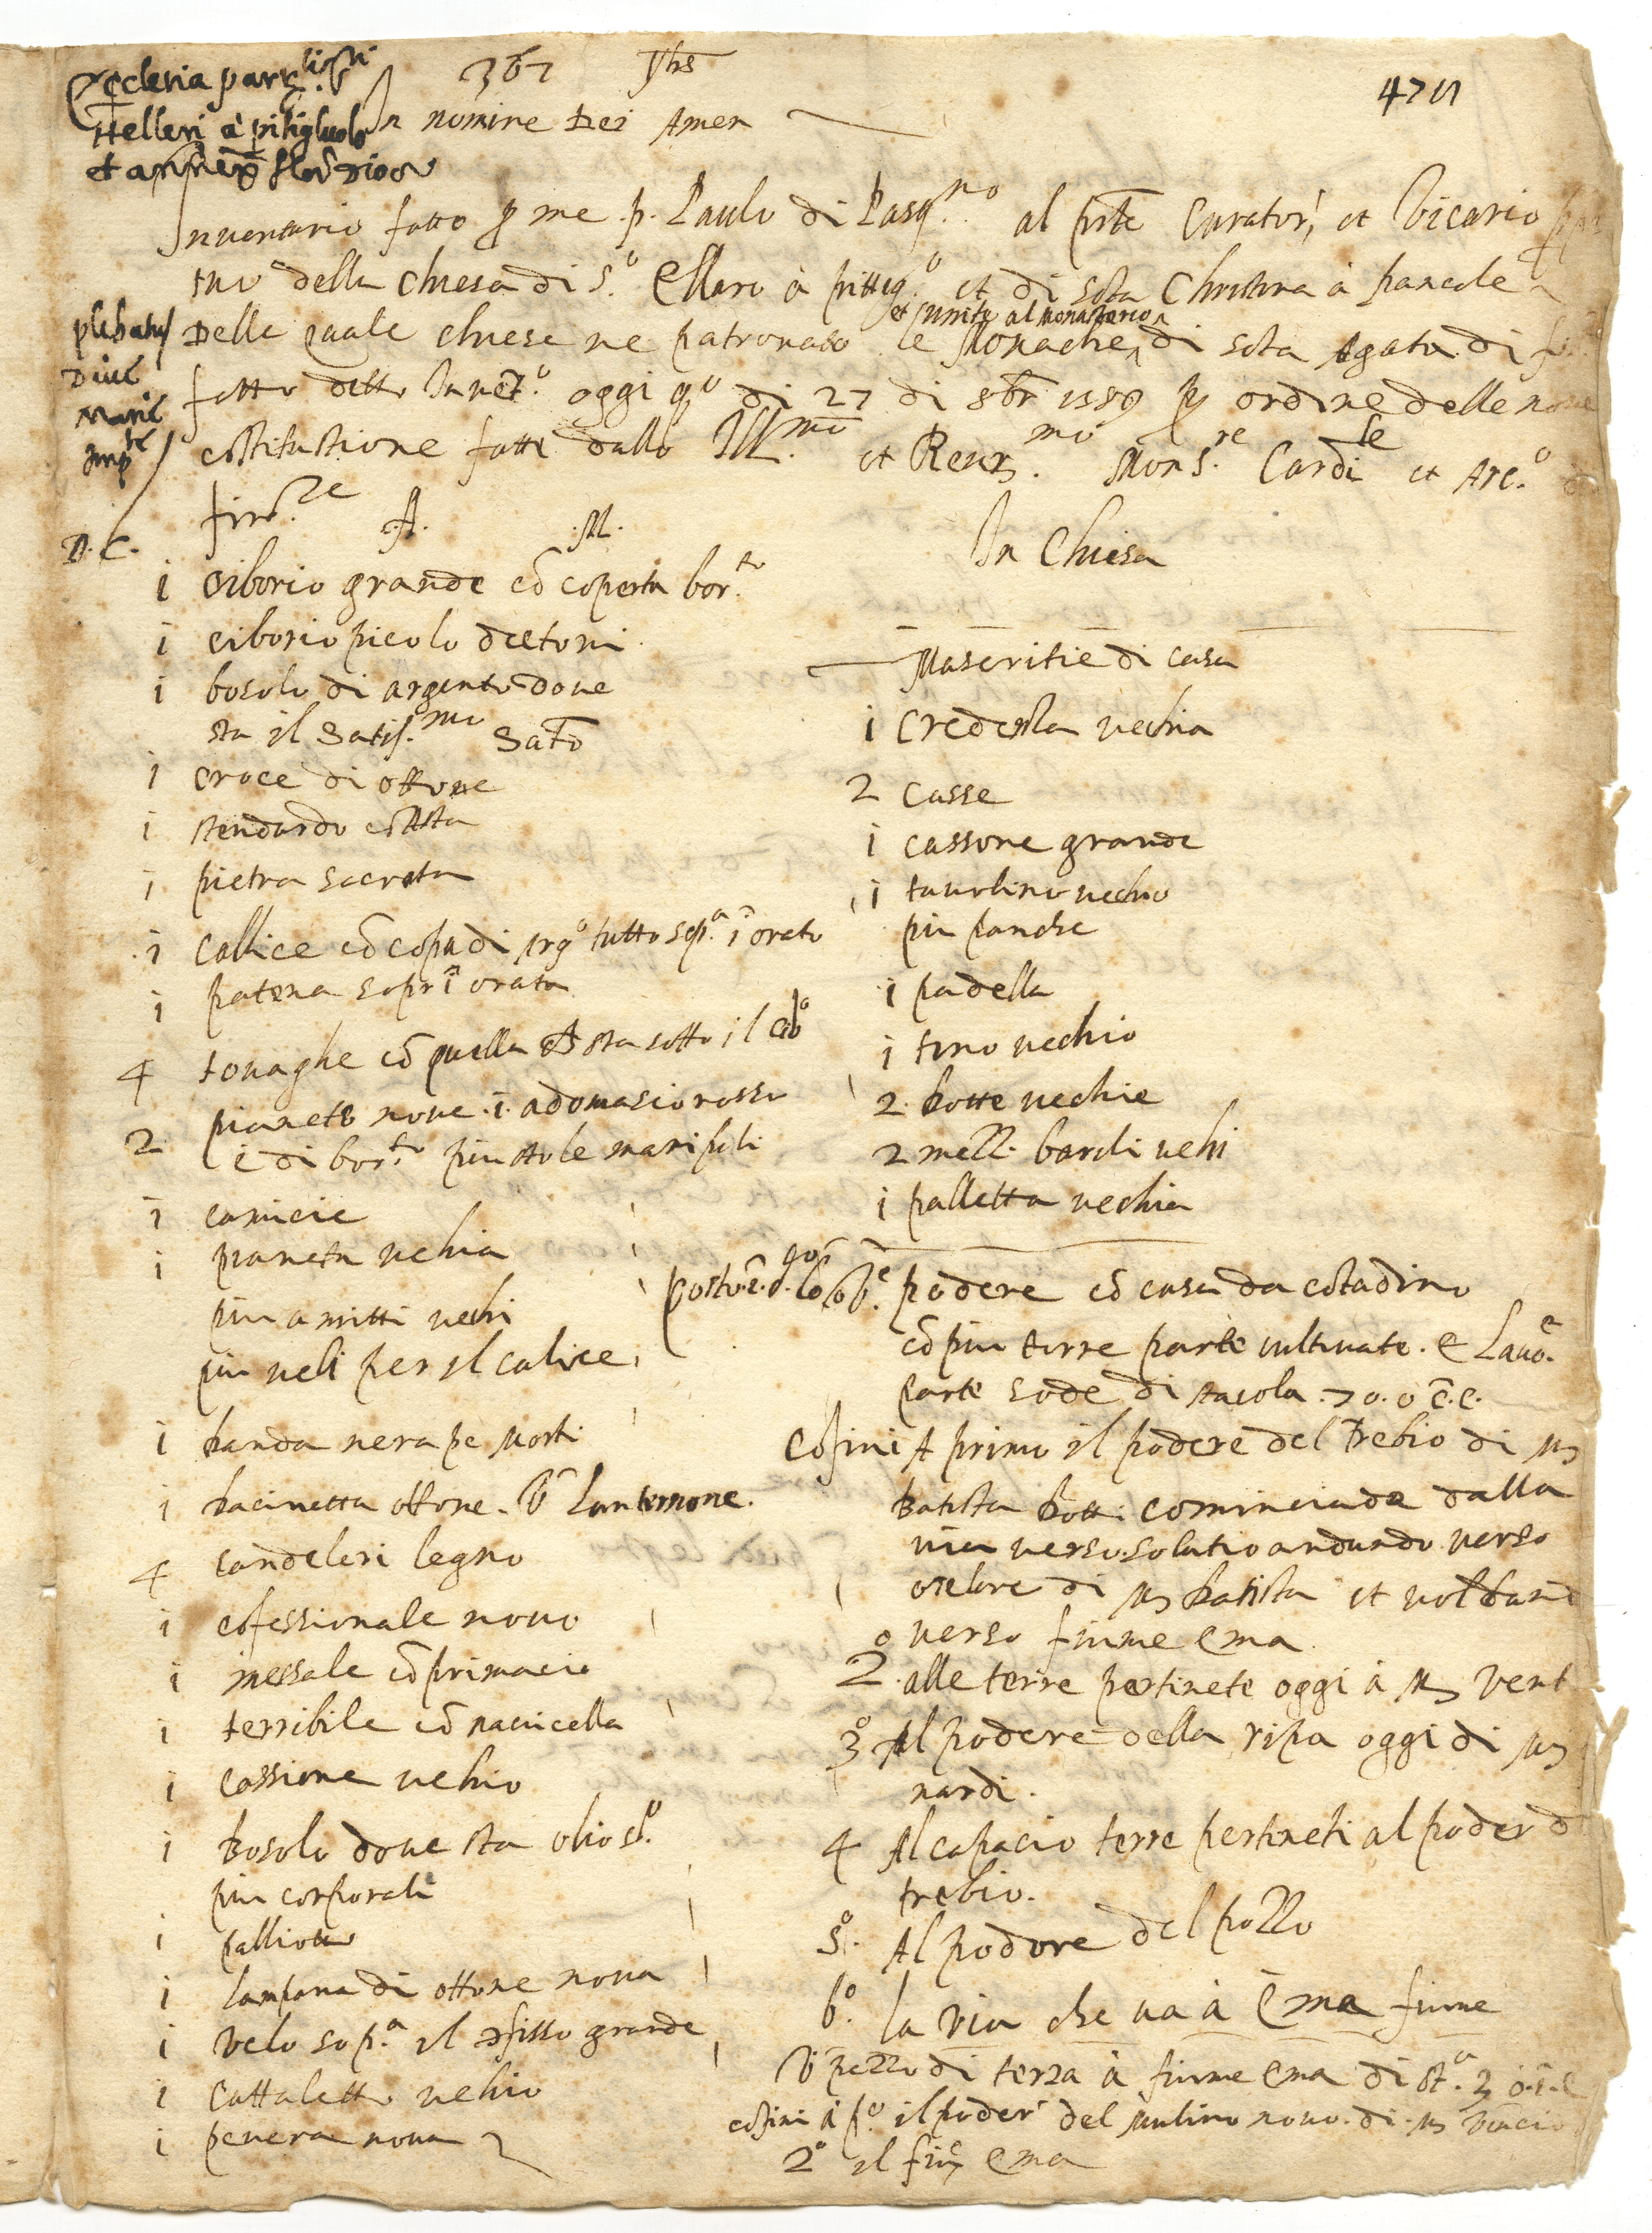 367 yhs
470
Ecclesia par
Helleri à pitigluolo
In nomine Dei Amen
Inventario fatto p me p. Paulo di Pasq.no al pnte Curator, et Vicario
suo della chiesa di s.o Ellaro à pittig.o et di sta Christina à pancole
et unite al monasterio
Delle quale chiese ne patronato le Monache di sta Agata di
plebatus
Dive
Marie
Imp.te
fatto detto Invet.o oggi q.o di 27 di 8br 1589 p ordine delle nove
costitutione fatte dallo Ill.mo et Rever.mo Mons.re Cardi.le et Arc.o
fire.ze
D. C.
.A. .M.
i ciborio grande cō coperta bor.to
i ciborio picolo dcetoni
i bosolo di argento dove
sta il Satis.mo Sato
i croce di ottone
i stendardo cō Asta
i pietra sacrata
i Callice cō copa di arg.o tutto sop.a i orato
i patena sopr i orata
4 tovaghe cō quella ch sta sotto il cib.o
2 pianete nove .i. adomascio rosso
e di bor.to piu stole manipoli
i camicie
i pianeta vehia
piu amitti vechi
piu veli per il calice
i banda nera pe Morti
i bacinetta ottone. Ū Lanternone.
4 candeleri legno
i cōfessionale novo
i messale cō primacio
i terribile cō navicella
i cassione vehio
i Bosolo dove sta olio s.to
piu corporali
i palliotto
i lampana di ottone nova
i velo sop.a il cfisso grande
i Cattaletto vehio
i pevera nova
In Chiesa
Maseritie di casa
i Credenza vechia
2 Casse
i cassone grande
i tavolino vechio
piu panche
i padella
i tino vechio
2 botte vechie
2 mezz. barili vehi
i palletta vechia
podere cō casa da cōtadino
cō piu terre parte cultivate. e Lavo.e
parte sode di stacola .70. o c.c.
Cōfini A primo il podere del Trebio di
Batista Botti cominciade dalla
via verso solatio andando verso
ovelare di Batista et voltand
verso fiume Ema
2.o alle terre pertinete oggi à Vent
3.o Al podere della ripa oggi di
nardi.
4 Al capacio terre pertineti al poder d
trebio.
5.o Al podere del pozzo
6.o la via che va à Ema fiume
Ū pezzo di terra à fiume Ema di st.a 3
cōfini à p.o il poder del mulino novo di
2.o il fiu Ema